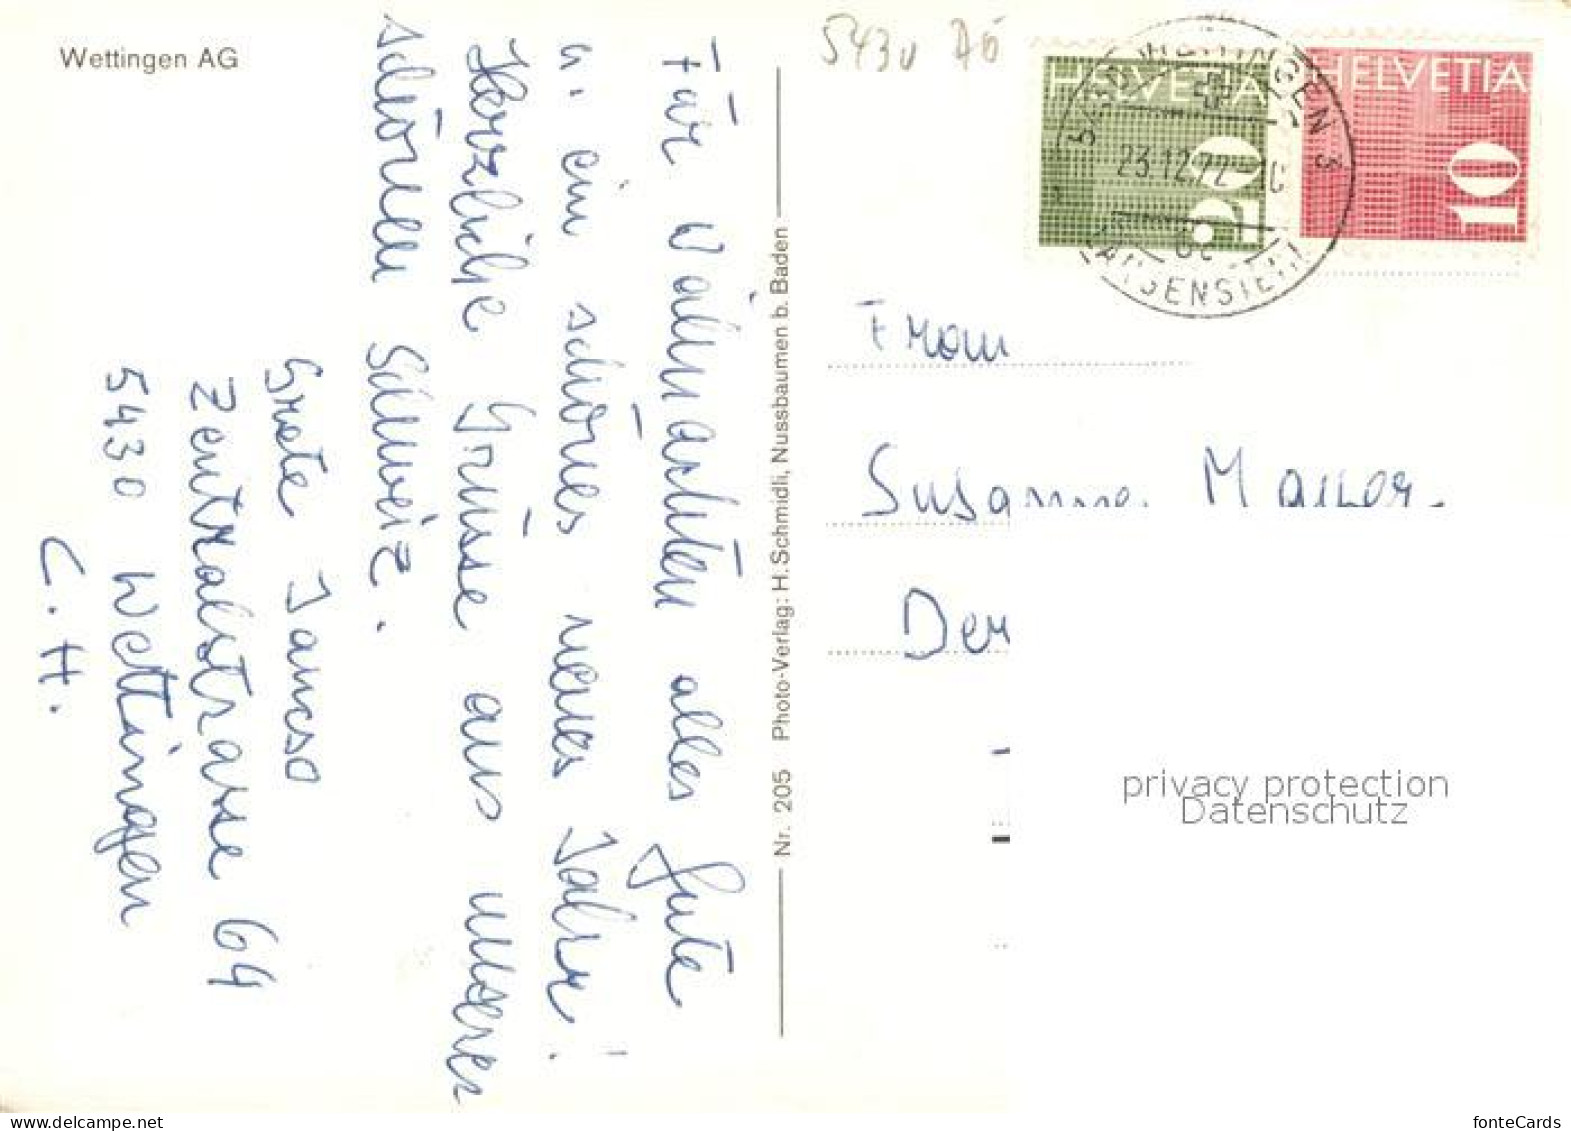 Wettingen AG
5430
HELVETIA
50
HELVETIA
10
5430 WETTINGEN 3
23.12.72
LANGENSTEIN
Für Weihnachten alles Gute
u. ein schönes neues Jahr!
Herzliche Grüsse aus unserer
schönen Schweiz.
Grete
Zentralstrasse 64
5430 Wettingen
C.H.
Nr. 205 Photo-Verlag: H. Schmidli, Nussbaumen b. Baden
Frau
Susanne
Der
privacy protection
Datenschutz
fonteCards